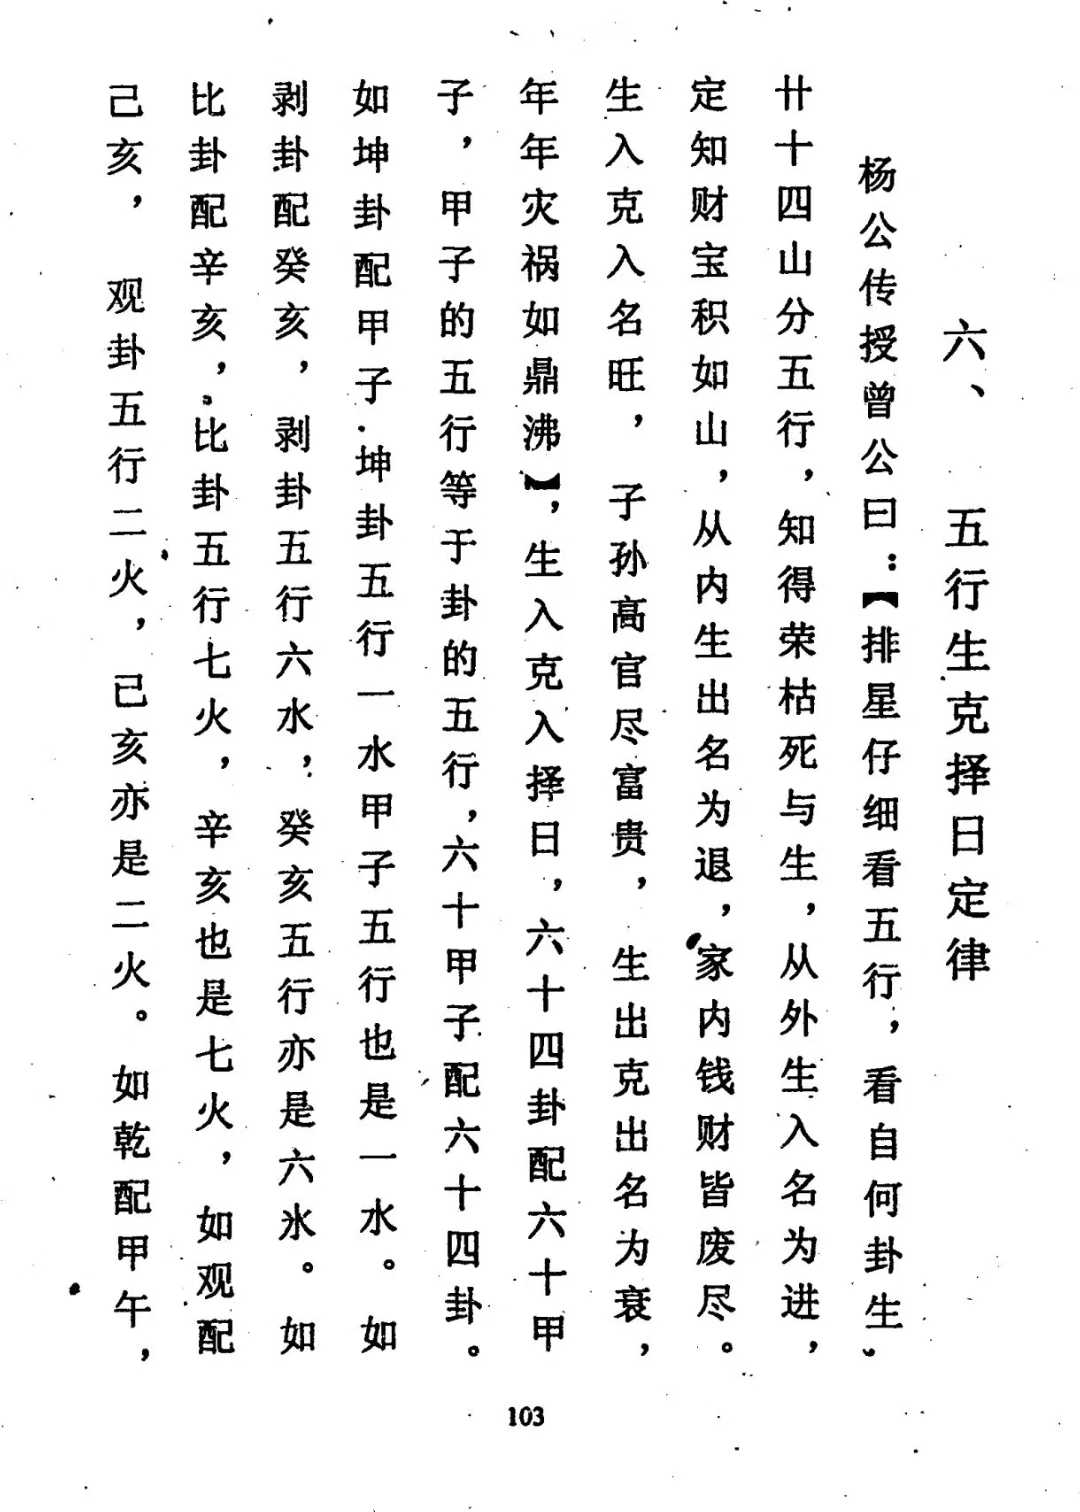 六、 五行生克择日定律
杨公传授曾公曰：【排星仔细看五行，看自何卦生，
廿十四山分五行，知得荣枯死与生，从外生入名为进，
定知财宝积如山，从内生出名为退，家内钱财皆废尽。
生入克入名旺，子孙高官尽富贵，生出克出名为衰，
年年灾祸如鼎沸】，生入克入择日，六十四卦配六十甲
子，甲子的五行等于卦的五行，六十甲子配六十四卦。
如坤卦配甲子.坤卦五行一水甲子五行也是一水。如
剥卦配癸亥，剥卦五行六水，癸亥五行亦是六氷。如
比卦配辛亥，比卦五行七火，辛亥也是七火，如观配
己亥，观卦五行二火，已亥亦是二火。如乾配甲午，
103